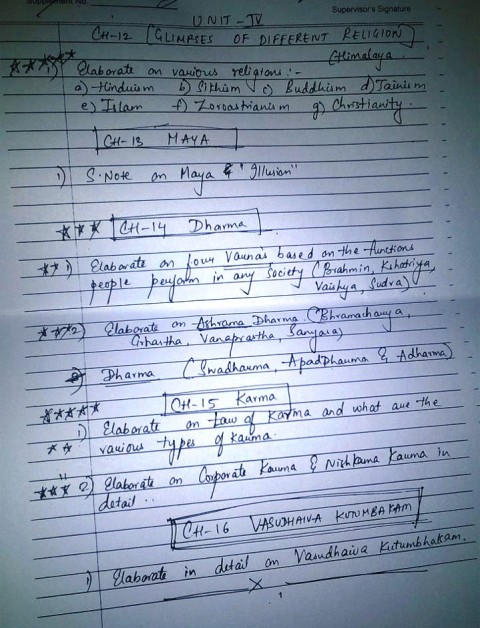 Supplement No.
Supervisor's Signature
UNIT-IV
CH-12 [GLIMPSES OF DIFFERENT RELIGION]
(Himalaya
1) Elaborate on various religions:-
a) Hinduism b) Sikhism c) Buddhism d) Jainism
e) Islam f) Zoroastrianism g) Christianity.
CH-13 MAYA
1) S.Note on Maya & "Illusion"
*** CH-14 Dharma
** 1) Elaborate on four Vaunas based on the functions
people perform in any society (Brahmin, Kshatriya,
Vaishya, Sudra)
*** 2) Elaborate on Ashrama Dharma. (Bhramacharya,
Grhastha, Vanaprastha, Sanyasa)
3) Dharma (Swadharma, Apadhharma & Adharma)
***** CH-15 Karma
1) Elaborate on Law of Karma and what are the
** various types of Karma.
*** 2) " Elaborate on Corporate Karma & Nishkama Karma in
detail..
CH-16 VASUDHAIVA KUTUMBAKAM
1) Elaborate in detail on Vasudhaiva Kutumbhakam.
X
1